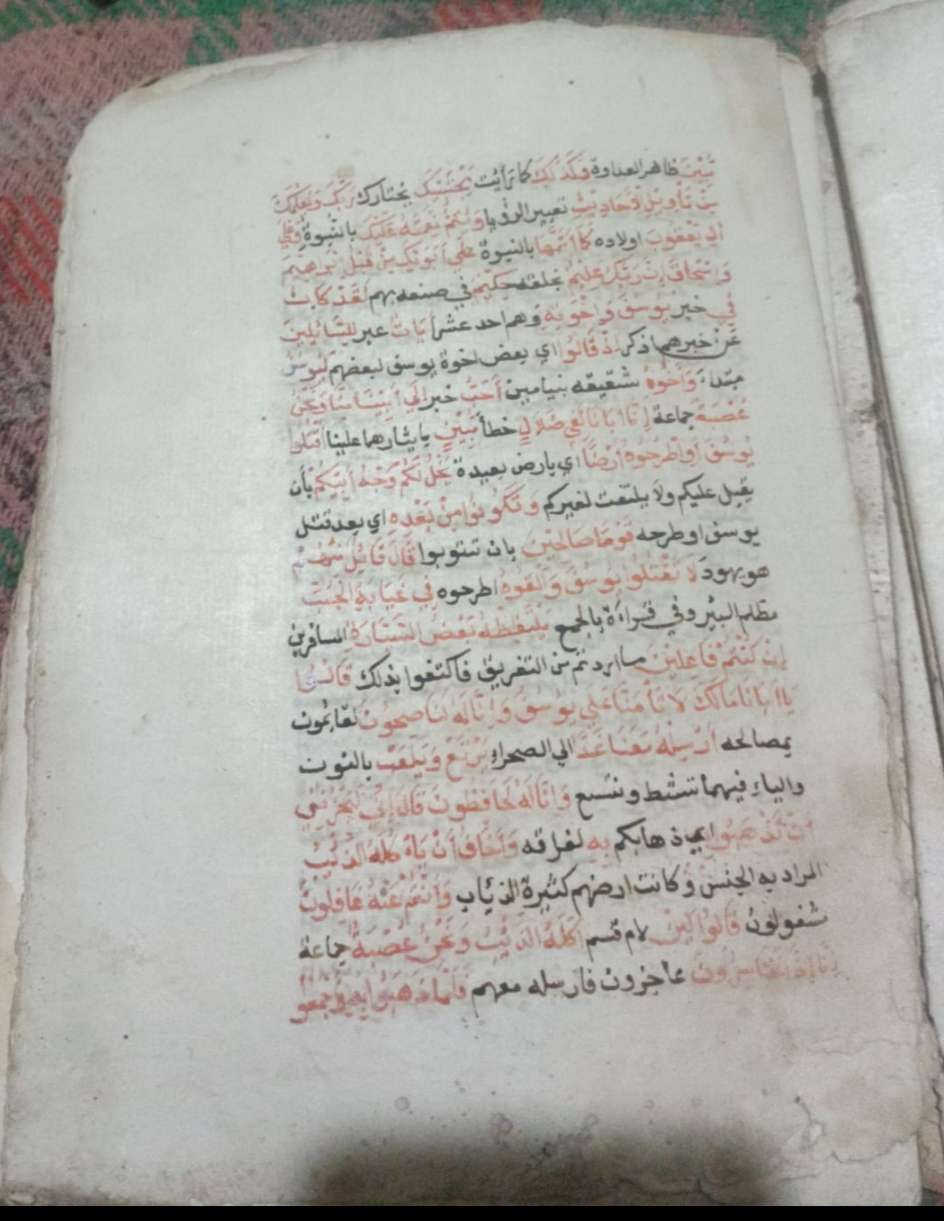 مُبِينٌ ظاهر العداوة وَكَذَلِكَ كما رَأَيْت يَجْتَبِيكَ يختارك رَبُّكَ وَيُعَلِّمُكَ
مِنْ تَأْوِيلِ الْأَحَادِيثِ تعبير الرؤيا وَيُتِمُّ نِعْمَتَهُ عَلَيْكَ بالنبوة وَعَلَى
آلِ يَعْقُوبَ اولاده كَمَا أَتَمَّهَا بالنبوة عَلَى أَبَوَيْكَ مِنْ قَبْلُ إِبْرَاهِيمَ
وَإِسْحَاقَ إِنَّ رَبَّكَ عَلِيمٌ بخلقه حَكِيمٌ في صنعه بهم لَقَدْ كَانَ
فِي خبر يُوسُفَ وَإِخْوَتِهِ وهم احد عشر آيَاتٌ عبر لِلسَّائِلِينَ
عَنْ خبرهم اذكر إِذْ قَالُوا اي بعض اخوة يوسف لبعضهم لَيُوسُفُ
مبتداء وَأَخُوهُ شقيقه بنيامين أَحَبُّ خبر إِلَى أَبِينَا مِنَّا وَنَحْنُ
عُصْبَةٌ جماعة إِنَّ أَبَانَا لَفِي ضَلَالٍ خطأ مُبِينٍ بايثارهما علينا اقْتُلُوا
يُوسُفَ أَوِ اطْرَحُوهُ أَرْضًا اي بارض بعيدة يَخْلُ لَكُمْ وَجْهُ أَبِيكُمْ بأن
يقبل عليكم ولا يلتفت لغيركم وَتَكُونُوا مِنْ بَعْدِهِ اي بعد قتل
يوسف او طرحه قَوْمًا صَالِحِينَ بان تتوبوا قَالَ قَائِلٌ مِنْهُمْ
هو يهودا لَا تَقْتُلُوا يُوسُفَ وَأَلْقُوهُ اطرحوه فِي غَيَابَةِ الْجُبِّ
مظلم البير وفي قراءة بالجمع يَلْتَقِطْهُ بَعْضُ السَّيَّارَةِ المسافرين
إِنْ كُنْتُمْ فَاعِلِينَ ما اردتم من التفريق فاكتفوا بذلك قَالُوا
يَا أَبَانَا مَالَكَ لَا تَأْمَنَّا عَلَى يُوسُفَ وَإِنَّا لَهُ لَنَاصِحُونَ لقايمون
بمصالحه أَرْسِلْهُ مَعَنَا غَدًا الي الصحراء نَرْتَعْ وَنَلْعَبْ بالنون
والياء فيهما ننشط ونتسع وَإِنَّا لَهُ لَحَافِظُونَ قَالَ إِنِّي لَيَحْزُنُنِي
أَنْ تَذْهَبُوا اي ذهابكم بِهِ لفراقه وَأَخَافُ أَنْ يَأْكُلَهُ الذِّئْبُ
المراد به الجنس وكانت ارضهم كثيرة الذئاب وَأَنْتُمْ عَنْهُ غَافِلُونَ
مشغولون قَالُوا لَئِنْ لام قسم أَكَلَهُ الذِّئْبُ وَنَحْنُ عُصْبَةٌ جماعة
إِنَّا إِذًا لَخَاسِرُونَ عاجزون فارسله معهم فَلَمَّا ذَهَبُوا بِهِ وَأَجْمَعُوا